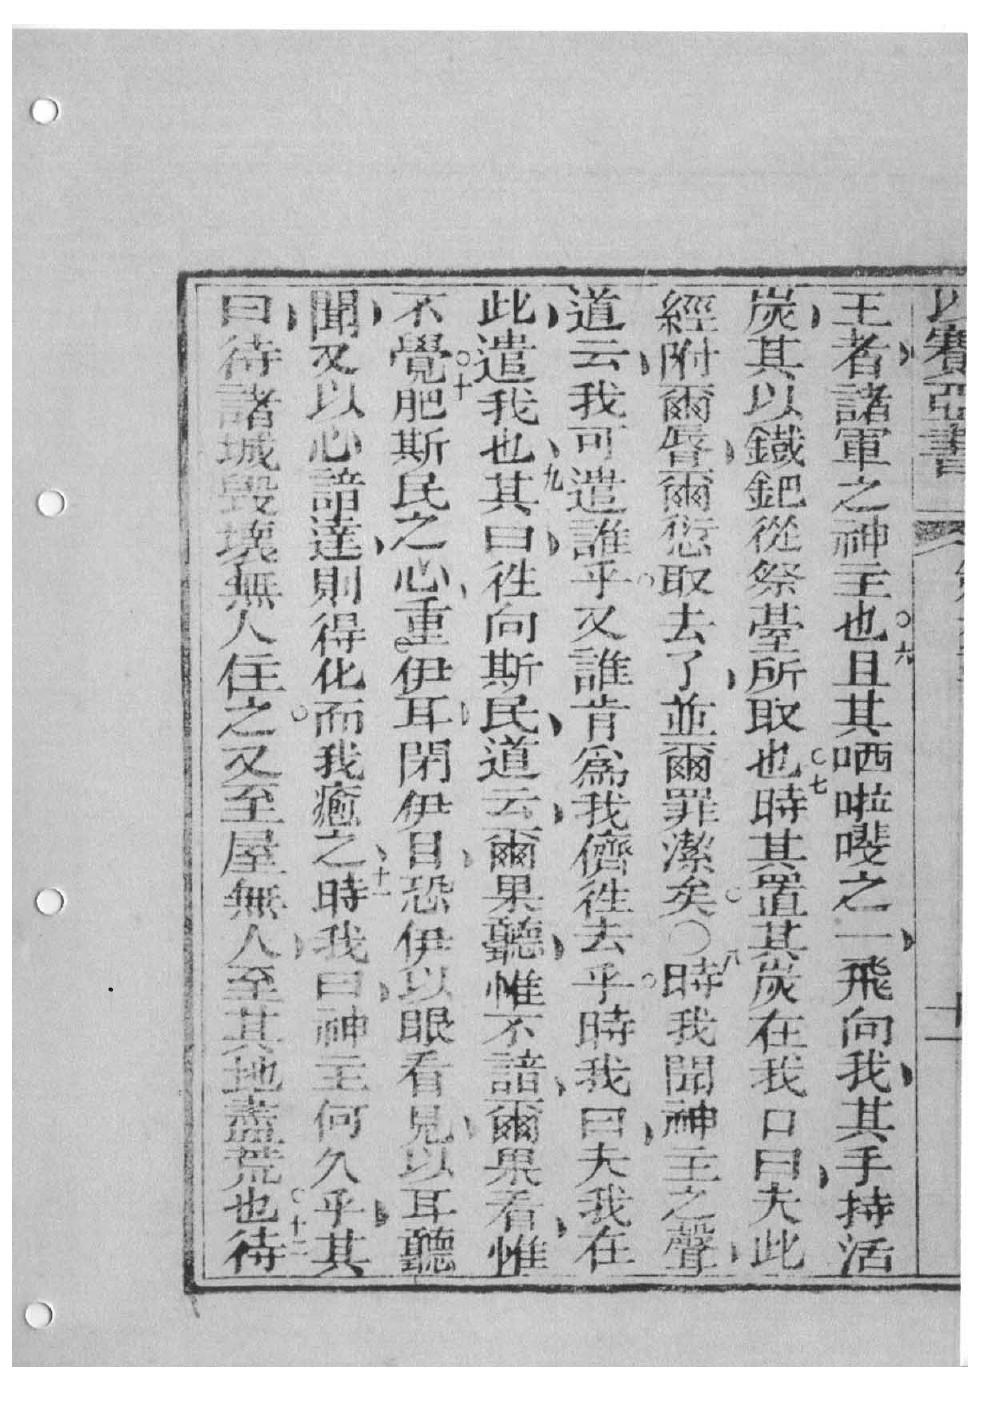 以賽亞書 十一
王者諸軍之神主也○六且其哂啦𠿕之一飛向我其手持活
炭其以鐵鈀從祭臺所取也○七時其置其炭在我口曰夫此
經附爾唇爾愆取去了並爾罪潔矣○〇八時我聞神主之聲
道云我可遣誰乎○又誰肯爲我儕徃去乎○時我曰夫我在
此遣我也九其曰徃向斯民道云爾果聽惟不諳爾果看惟
不覺○十肥斯民之心重伊耳閉伊目恐伊以眼看見以耳聽
聞及以心諳達則得化而我癒之十一時我曰神主何久乎其
曰待諸城毀壞無人住之○又至屋無人至其地盡荒也○十二待